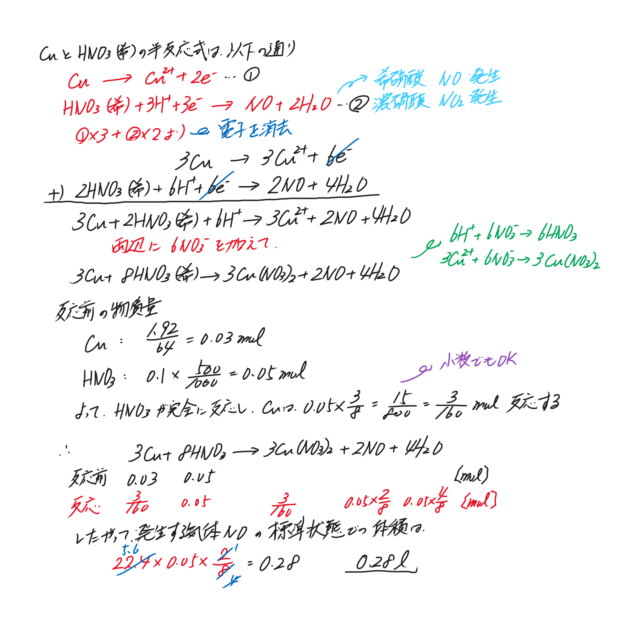 CuとHNO₃(希)の半反応式は、以下の通り
Cu → Cu²⁺ + 2e⁻ …①
HNO₃(希) + 3H⁺ + 3e⁻ → NO + 2H₂O …②
希硝酸 NO 発生
濃硝酸 NO₂ 発生
①×3 + ②×2より 電子を消去
3Cu → 3Cu²⁺ + 6e⁻
+) 2HNO₃(希) + 6H⁺ + 6e⁻ → 2NO + 4H₂O
3Cu + 2HNO₃(希) + 6H⁺ → 3Cu²⁺ + 2NO + 4H₂O
両辺に 6NO₃⁻を加えて、
6H⁺ + 6NO₃⁻ → 6HNO₃
3Cu²⁺ + 6NO₃⁻ → 3Cu(NO₃)₂
3Cu + 8HNO₃(希) → 3Cu(NO₃)₂ + 2NO + 4H₂O
反応前の物質量
Cu : 1.92/64 = 0.03 mol
HNO₃ : 0.1 × 500/1000 = 0.05 mol
小数でもOK
よって、HNO₃が完全に反応し、Cuは、0.05 × 3/8 = 15/800 = 3/160 mol 反応する
∴ 3Cu + 8HNO₃ → 3Cu(NO₃)₂ + 2NO + 4H₂O
反応前 0.03 0.05 [mol]
反応 3/160 0.05 3/160 0.05×2/8 0.05×4/8 [mol]
したがって、発生する気体NOの標準状態での体積は、
5.6 1
22.4 × 0.05 × 2/8 = 0.28 0.28 l
4